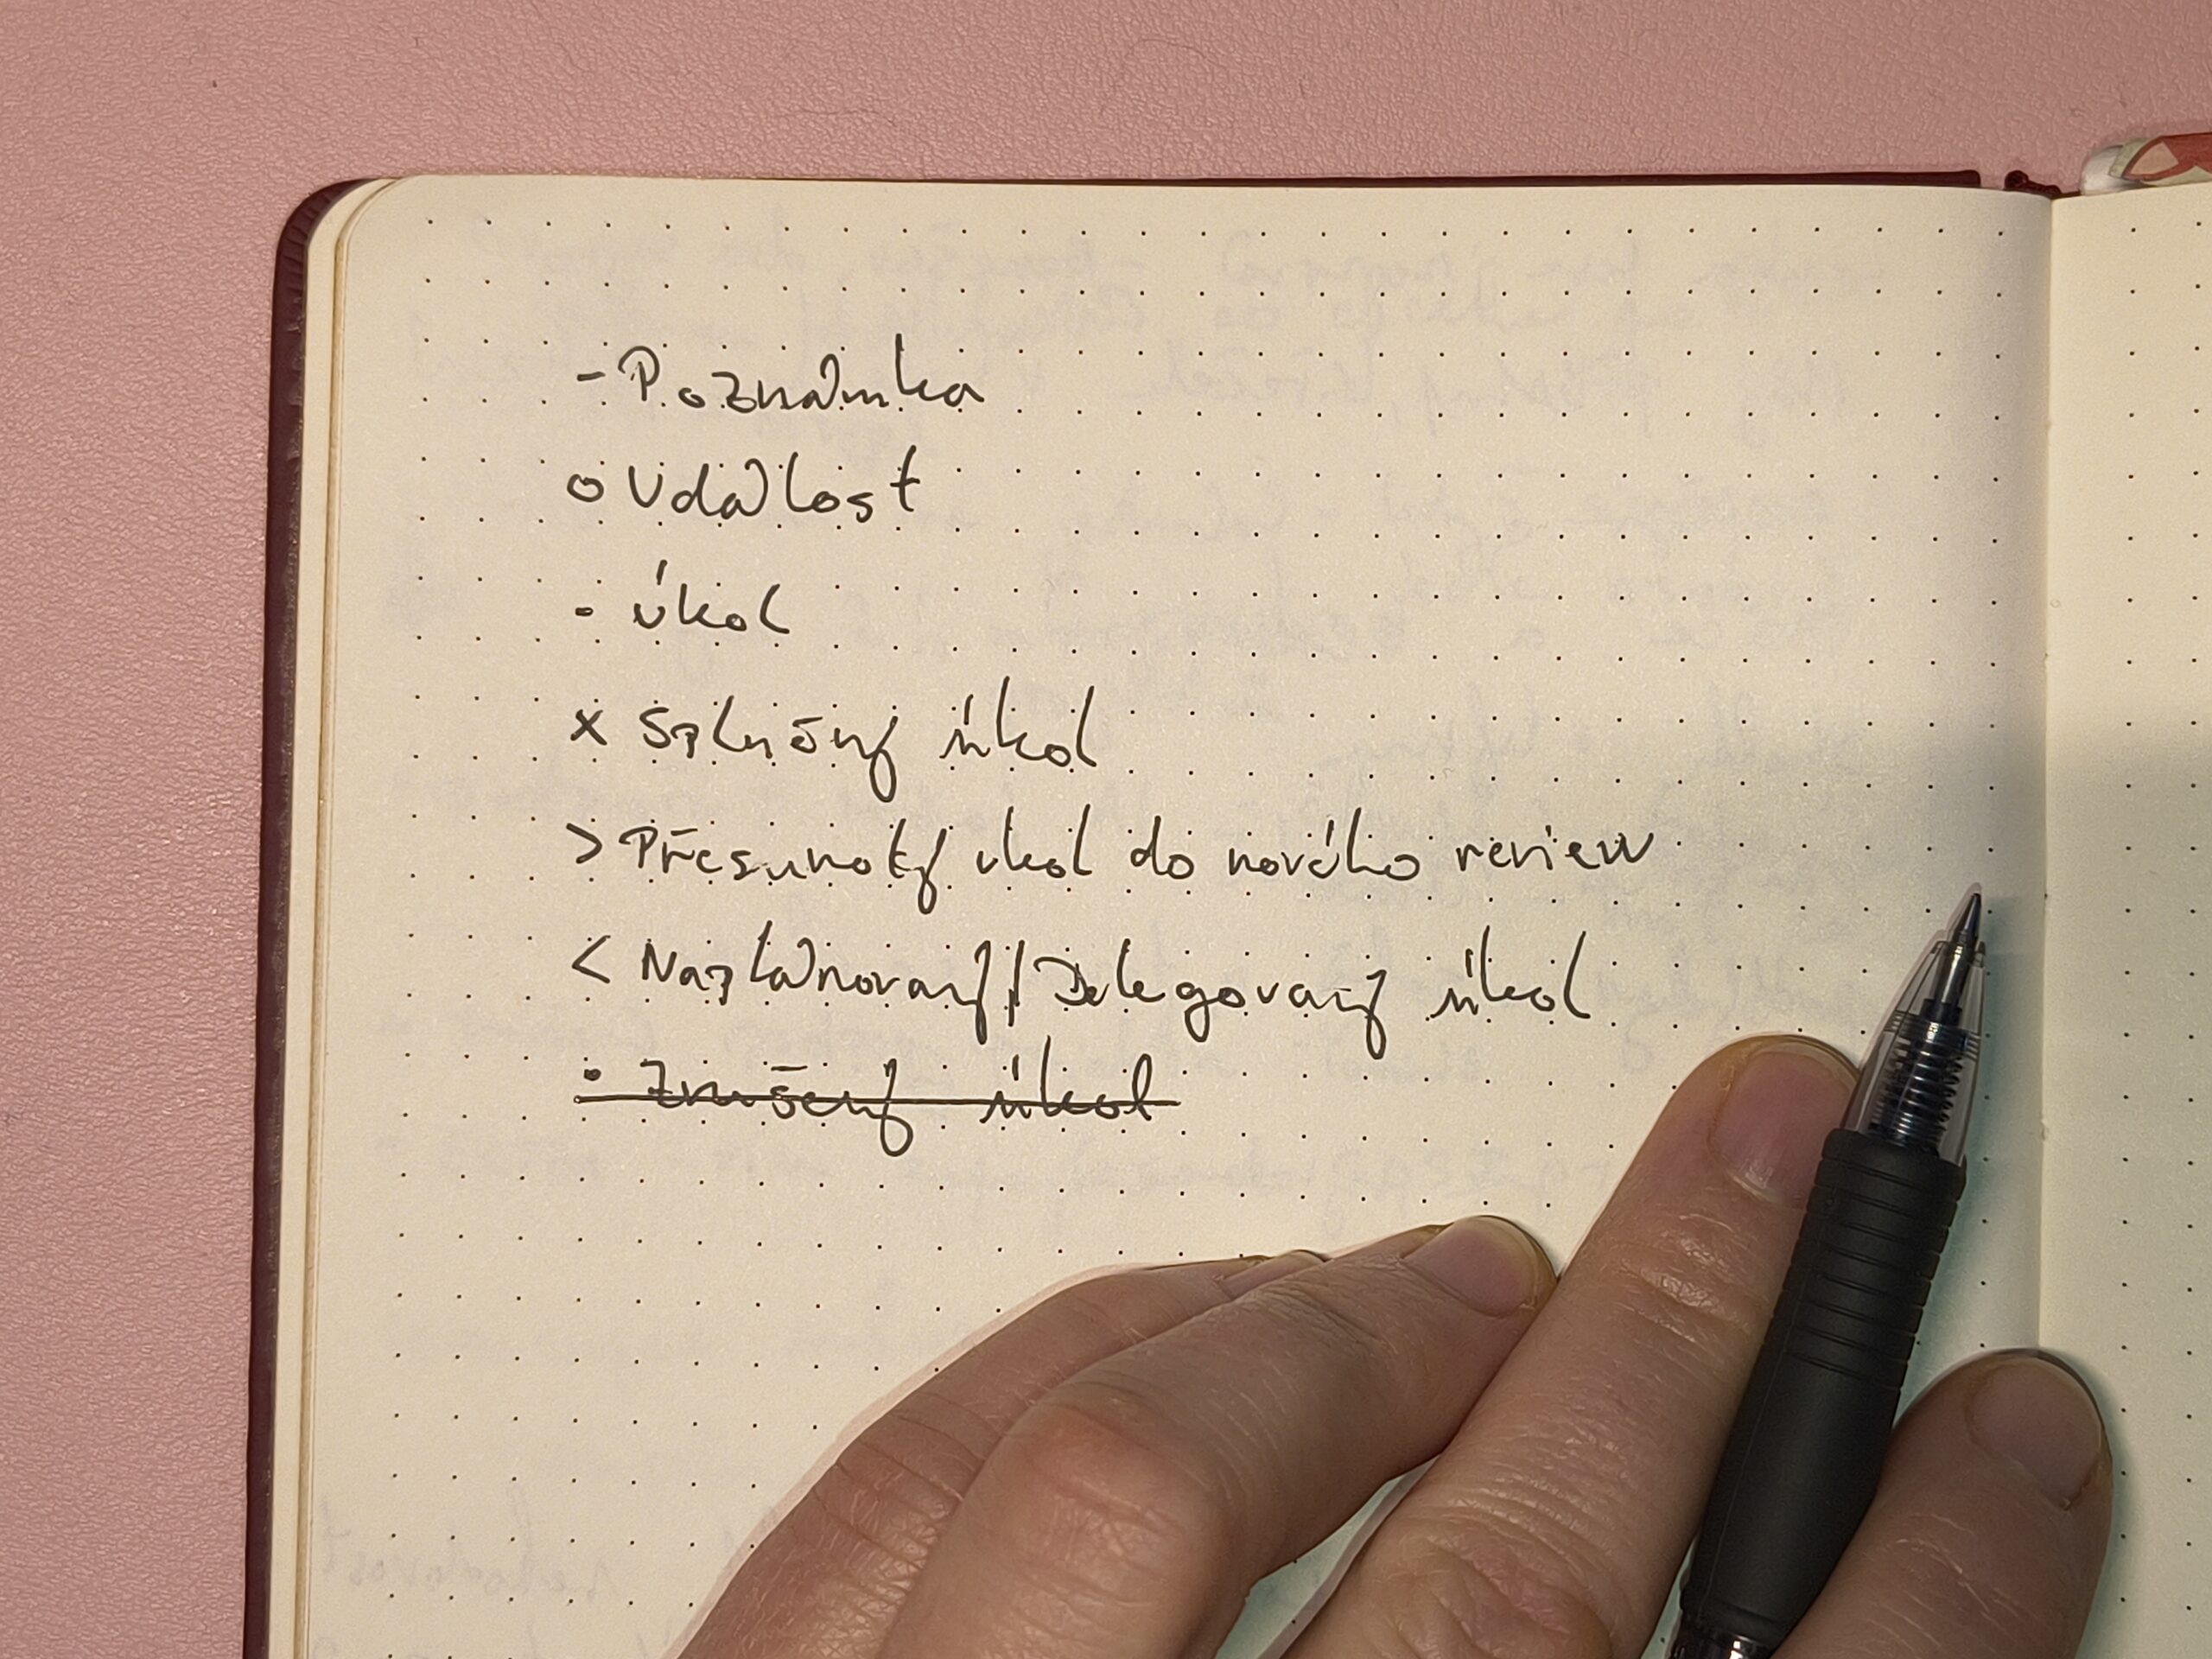 - Poznámka
o Událost
· úkol
x Splněný úkol
> Přesunutý úkol do nového review
< Naplánovaný/Delegovaný úkol
· Zrušený úkol